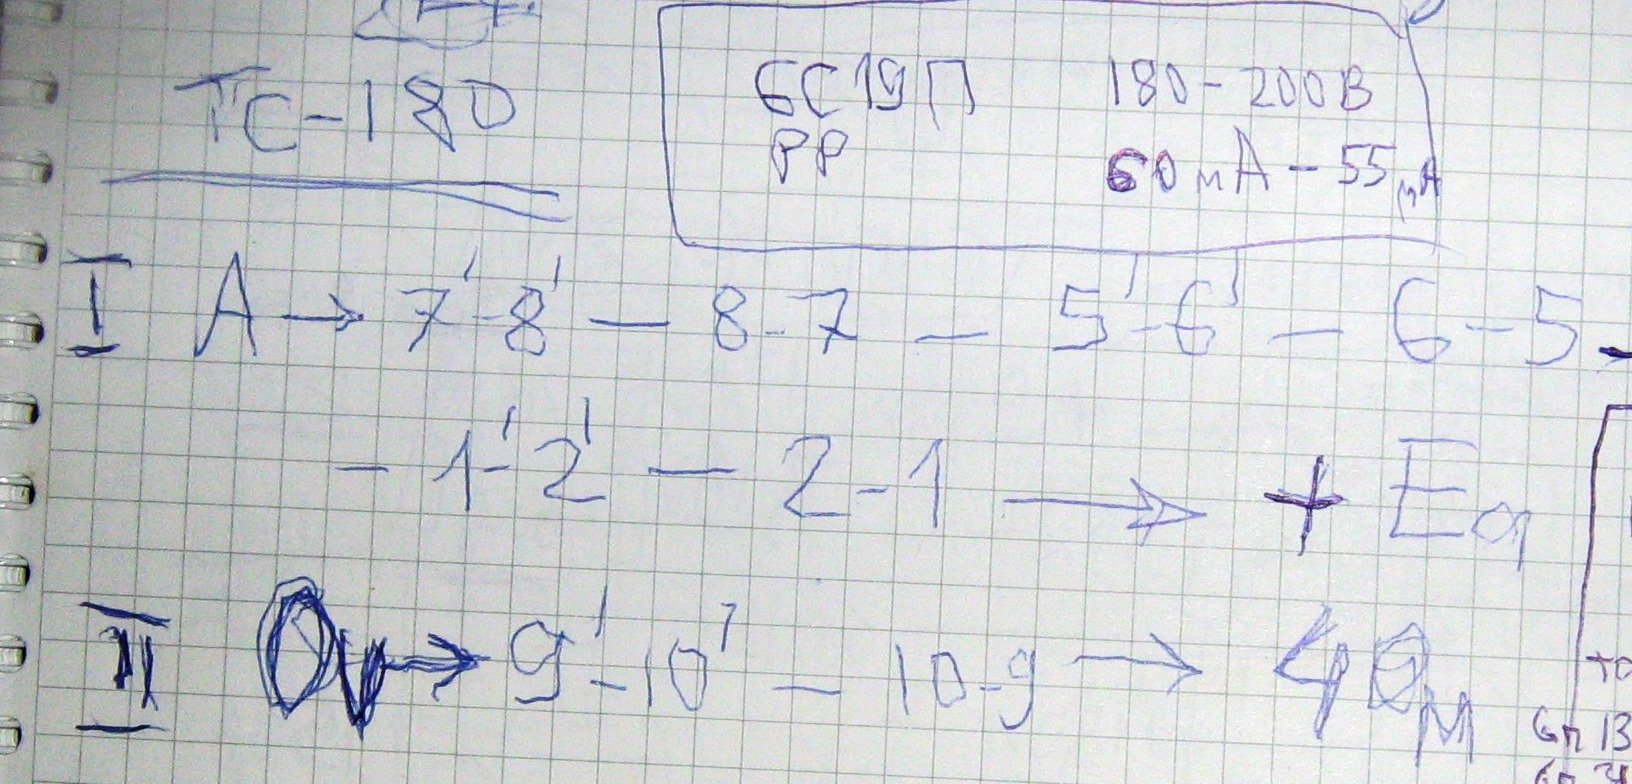 ТС-180
6С19П 180-200В
РР 60мА - 55мА
I А → 7'-8' — 8-7 — 5'-6' — 6-5 -
- 1'-2' — 2-1 → + Еа
II → 9'-10' — 10-9 →
6п 13